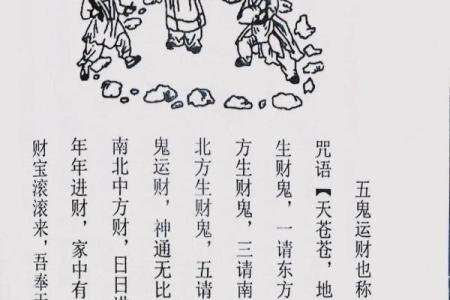 五鬼运财也称
咒语【天苍苍，地
生财鬼，一请东方
方生财鬼，三请南
北方生财鬼，五请
鬼运财，神通无比
南北中方财，日日进
年年进财，家中有
财宝滚滚来，吾奉天